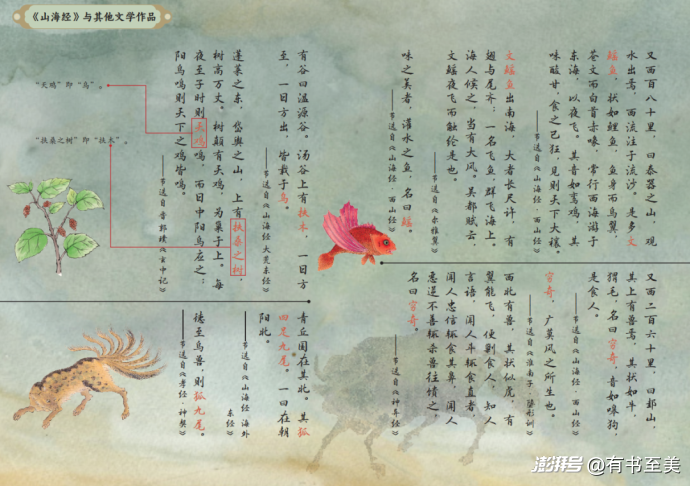 《山海经》与其他文学作品
又西百八十里，曰泰器之山，观
水出焉，西流注于流沙。是多文
鳐鱼，状如鲤鱼，鱼身而鸟翼，
苍文而白首赤喙，常行西海游于
东海，以夜飞。其音如鸾鸡，其
味酸甘，食之已狂，见则天下大穰。
——节选自《山海经·西山经》
文鳐鱼出南海，大者长尺许，有
翅与尾齐；一名飞鱼，群飞海上。
海人候之，当有大风。吴都赋云，
文鳐夜飞而触纶是也。
——节选自《尔雅翼》
味之美者，灌水之鱼，名曰鳐。
——节选自《山海经·西山经》
有谷曰温源谷。汤谷上有扶木，一日方
至，一日方出，皆载于乌。
——节选自《山海经 大荒东经》
蓬莱之东，岱舆之山，上有扶桑之树，
树高万丈。树颠有天鸡，为巢于上。每
夜至子时则天鸡鸣，而日中阳乌应之；
阳乌鸣则天下之鸡皆鸣。
——节选自晋 郭璞《玄中记》
“天鸡”即“乌”。
“扶桑之树”即“扶木”。
又西二百六十里，曰邽山，
其上有兽焉，其状如牛，
猬毛，名曰穷奇，音如嗥狗，
是食人。
——节选自《山海经·西山经》
穷奇，广莫风之所生也。
——节选自《淮南子·隆形训》
西北有兽，其状似虎，有
翼能飞，便剿食人，知人
言语，闻人斗辄食直者，
闻人忠信辄食其鼻，闻人
恶逆不善辄杀兽往馈之，
名曰穷奇。
——节选自《神异经》
青丘国在其北。其狐
四足九尾。一曰在朝
阳北。
——节选自《山海经 海外
东经》
德至鸟兽，则狐九尾。
——节选自《孝经·神契》
澎湃号@有书至美